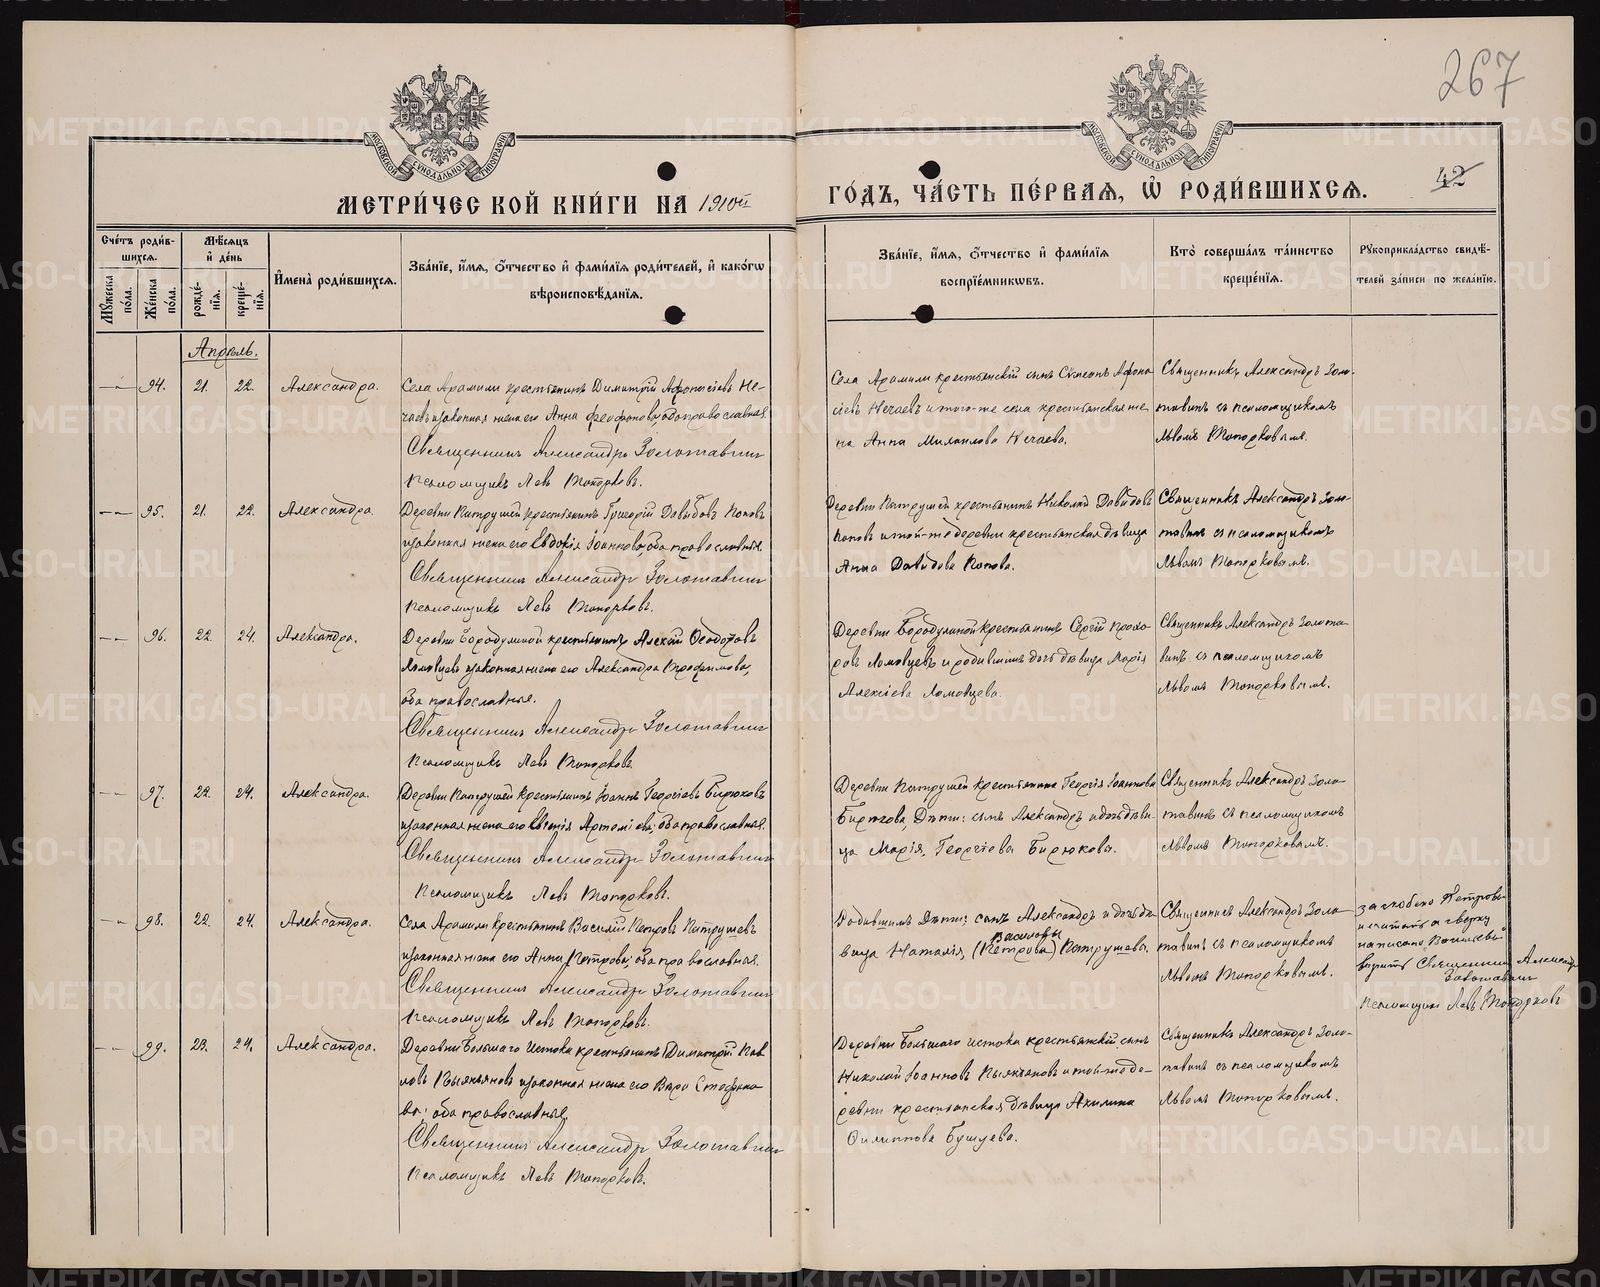 267
МОСКОВСКОЙ СѴНОДАЛЬНОЙ ТИПОГРАФІИ
МОСКОВСКОЙ СѴНОДАЛЬНОЙ ТИПОГРАФІИ
42
МЕТРИ́ЧЕСКОЙ КНИ́ГИ НА 1910й
ГО́ДЪ, ЧА́СТЬ ПЕ́РВАѦ, Ѡ҆ РОДИ́ВШИХСѦ.
Сче́тъ роди́в-
шихсѧ.
Мꙋ́жеска по́ла.
Же́нска по́ла.
Мѣ́сѧцъ и҆ де́нь
рожде́-нїѧ.
креще́-нїѧ.
И҆мена̀ роди́вшихсѧ.
Зва́нїе, и҆́мѧ, ѻ҆́тчество и҆ фами́лїѧ роди́телей, и҆ како́гѡ
вѣроисповѣ́данїѧ.
Зва́нїе, и҆́мѧ, ѻ҆́тчество и҆ фами́лїѧ
воспрїе́мникѡвъ.
Кто̀ соверша́лъ та́инство
креще́нїѧ.
Рꙋкоприкла́дство свидѣ́-
телей за́писи по жела́нїю.
Апрѣль.
94. 21. 22. Александра.
Села Арамили крестьянинъ Димитрій Афонасіевъ Не-
чаевъ и законная жена его Анна Феофанова, оба православные.
Священникъ Александръ Золотавинъ
Псаломщикъ Левъ Топорковъ.
Села Арамили крестьянскій сынъ Сѵмеонъ Афона-
сіевъ Нечаевъ и того-же села крестьянская же-
на Анна Михаилова Нечаева.
Священникъ Александръ Золо-
тавинъ съ псаломщикомъ
Львомъ Топорковымъ.
95. 21. 22. Александра.
Деревни Патрушей крестьянинъ Григорій Давыдовъ Поповъ
и законная жена его Евдокія Іоаннова, оба православные.
Священникъ Александръ Золотавинъ
Псаломщикъ Левъ Топорковъ.
Деревни Патрушей крестьянинъ Николай Давидовъ
Поповъ и той-же деревни крестьянская дѣвица
Анна Давидова Попова.
Священникъ Александръ Золо-
тавинъ съ псаломщикомъ
Львомъ Топорковымъ.
96. 22. 24. Александра.
Деревни Бородулиной крестьянинъ Алексій Ѳеодотовъ
Ломовцевъ и законная жена его Александра Трофимова,
оба православные.
Священникъ Александръ Золотавинъ
Псаломщикъ Левъ Топорковъ
Деревни Бородулиной крестьянинъ Сергій Прохо-
ровъ Ломовцевъ и родившимъ дочь дѣвица Марія
Алексіева Ломовцева.
Священникъ Александръ Золота-
винъ съ псаломщикомъ
Львомъ Топорковымъ.
97. 22. 24. Александра.
Деревни Патрушей крестьянинъ Іоаннъ Георгіевъ Бирюковъ
и законная жена его Евгенія Артеміева, оба православные.
Священникъ Александръ Золотавинъ
Псаломщикъ Левъ Топорковъ.
Деревни Патрушей крестьянина Георгія Іоаннова
Бирюкова, Дѣти: сынъ Александръ и дочь дѣви-
ца Марія, Георгіевы Бирюковы.
Священникъ Александръ Золо-
тавинъ съ псаломщикомъ
Львомъ Топорковымъ.
98. 22. 24. Александра.
Села Арамили крестьянинъ Василій Петровъ Патрушевъ
и законная жена его Анна Петрова, оба православные.
Священникъ Александръ Золотавинъ
Псаломщикъ Левъ Топорковъ.
Родившимъ Дѣти: сынъ Александръ и дочь дѣ-
Васильевы
вица Наталія, (Петровы) Патрушевы.
Священникъ Александръ Золо-
тавинъ съ псаломщикомъ
Львомъ Топорковымъ.
за скобено Петровы
и сверху
написано "Васильевы"
вѣрить Священникъ Александръ
Золотавинъ
Псаломщикъ Левъ Топорковъ
99. 23. 24. Александра.
Деревни Большаго Истока крестьянинъ Димитрій Пав-
ловъ и законная жена его Вѣра Стефано-
ва, оба православные.
Священникъ Александръ Золотавинъ
Псаломщикъ Левъ Топорковъ.
Деревни Большаго Истока крестьянскій сынъ
Николай Іоанновъ и той-же де-
ревни крестьянская дѣвица Акилина
Филиппова Бушуева.
Священникъ Александръ Золо-
тавинъ съ псаломщикомъ
Львомъ Топорковымъ.
METRIKI.GASO-URAL.RU